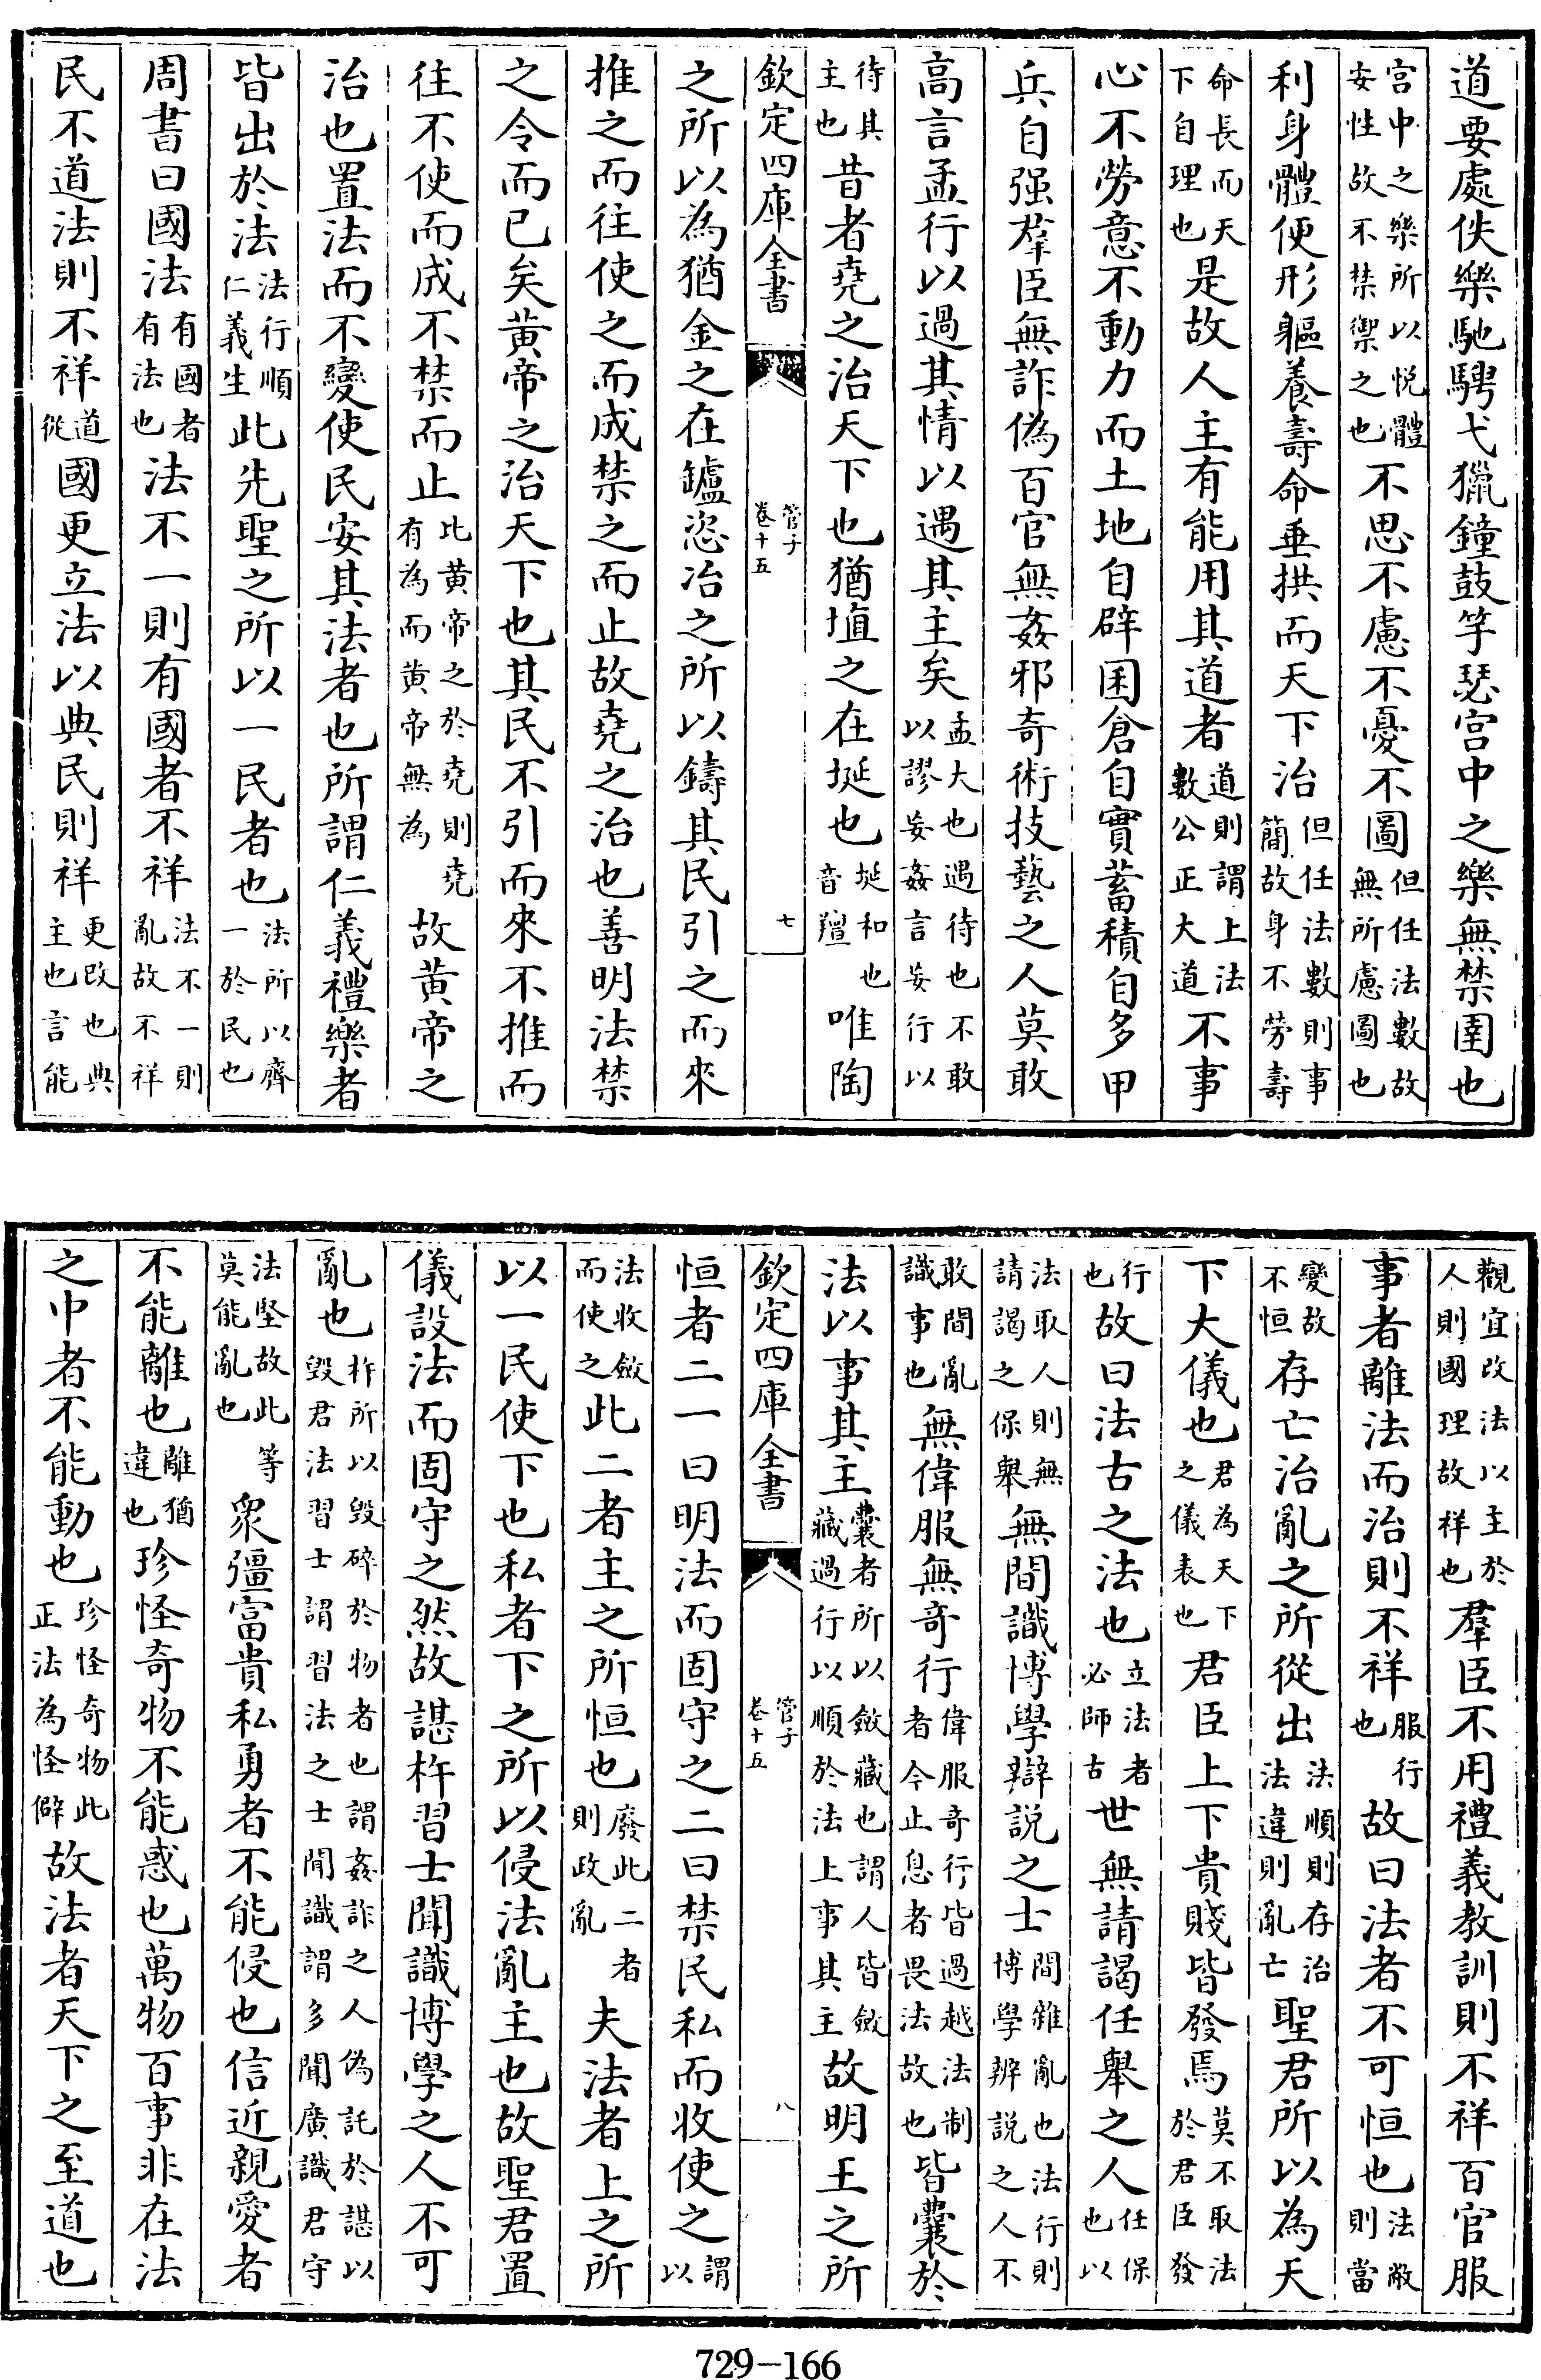 道要處佚樂馳騁弋獵鐘鼓竽瑟宫中之樂無禁圉也
宫中之樂所以悦體安性故不禁禦之也不思不慮不憂不圖但任法數故無所慮圖也
利身體便形軀養壽命垂拱而天下治但任法數則事簡故身不勞壽
命長而天下自理也是故人主有能用其道者道則謂上法數公正大道不事
心不勞意不動力而土地自辟囷倉自實蓄積自多甲
兵自强羣臣無詐偽百官無姦邪奇術技藝之人莫敢
高言孟行以過其情以遇其主矣孟大也遇待也不敢以謬妄姦言妄行以
待其主也昔者堯之治天下也猶埴之在埏也埏和也音羶唯陶
欽定四庫全書 管子卷十五 七
之所以為猶金之在鑪恣冶之所以鑄其民引之而來
推之而往使之而成禁之而止故堯之治也善明法禁
之令而已矣黄帝之治天下也其民不引而來不推而
往不使而成不禁而止比黄帝之於堯則堯有為而黄帝無為故黄帝之
治也置法而不變使民安其法者也所謂仁義禮樂者
皆出於法法行順仁義生此先聖之所以一民者也法所以齊一於民也
周書曰國法有國者有法也法不一則有國者不祥法不一則亂故不祥
民不道法則不祥道從國更立法以典民則祥更改也典主也言能
觀宜改法以主於人則國理故祥也羣臣不用禮義教訓則不祥百官服
事者離法而治則不祥服行也故曰法者不可恒也法敝則當
變故不恒存亡治亂之所從出法順則存治法違則亂亡聖君所以為天
下大儀也君為天下之儀表也君臣上下貴賤皆發焉莫不取法於君臣發
行也故曰法古之法也立法者必師古世無請謁任舉之人任保也以
法取人則無請謁之保舉無間識博學辯説之士間雜亂也法行則博學辨説之人不
敢間亂識事也無偉服無奇行偉服奇行皆過越法制者今止息者畏法故也皆囊於
法以事其主囊者所以斂藏也謂人皆斂藏過行以順於法上事其主故明王之所
欽定四庫全書 管子卷十五 八
恒者二一曰明法而固守之二曰禁民私而收使之謂以
法收斂而使之此二者主之所恒也廢此二者則政亂夫法者上之所
以一民使下也私者下之所以侵法亂主也故聖君置
儀設法而固守之然故諶杵習士聞識博學之人不可
亂也杵所以毀碎於物者也謂姦詐之人偽託於諶以毀君法習士謂習法之士聞識謂多聞廣識君守
法堅故此等莫能亂也衆彊富貴私勇者不能侵也信近親愛者
不能離也離猶違也珍怪奇物不能惑也萬物百事非在法
之中者不能動也珍怪奇物此正法為怪僻故法者天下之至道也
729-166